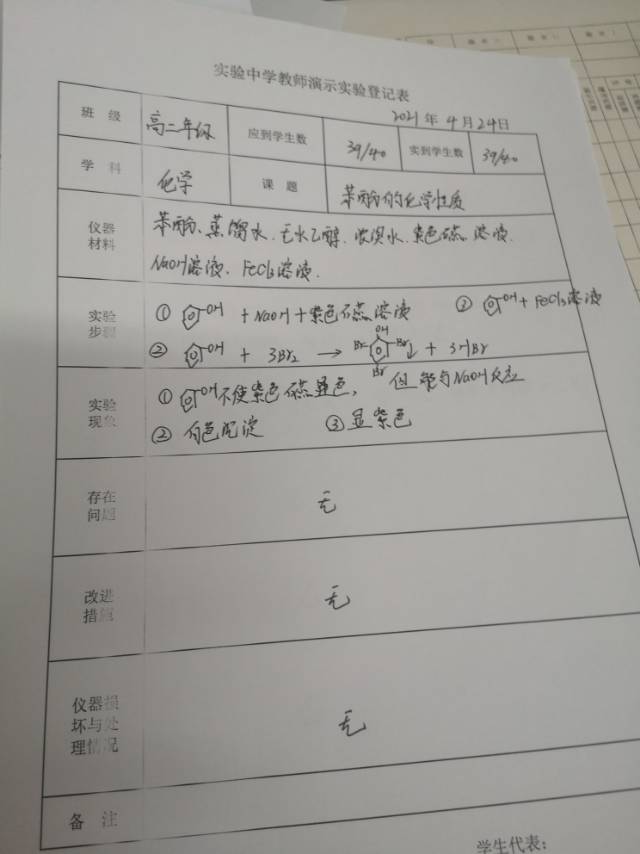 实验中学教师演示实验登记表
2021年4月24日
班 级 高二年级 应到学生数 39/40 实到学生数 39/40
学 科 化学 课 题 苯酚的化学性质
仪器材料
苯酚、蒸馏水、无水乙醇、浓溴水、紫色石蕊溶液、
NaOH溶液、FeCl₃溶液.
实验步骤
① OH + NaOH + 紫色石蕊溶液 ③ OH + FeCl₃溶液
② OH + 3Br₂ → OH Br Br Br ↓ + 3HBr
实验现象
① OH不使紫色石蕊显色, 但能与NaOH反应
② 白色沉淀 ③ 显紫色
存在问题 无
改进措施 无
仪器损坏与处理情况 无
备 注
学生代表: